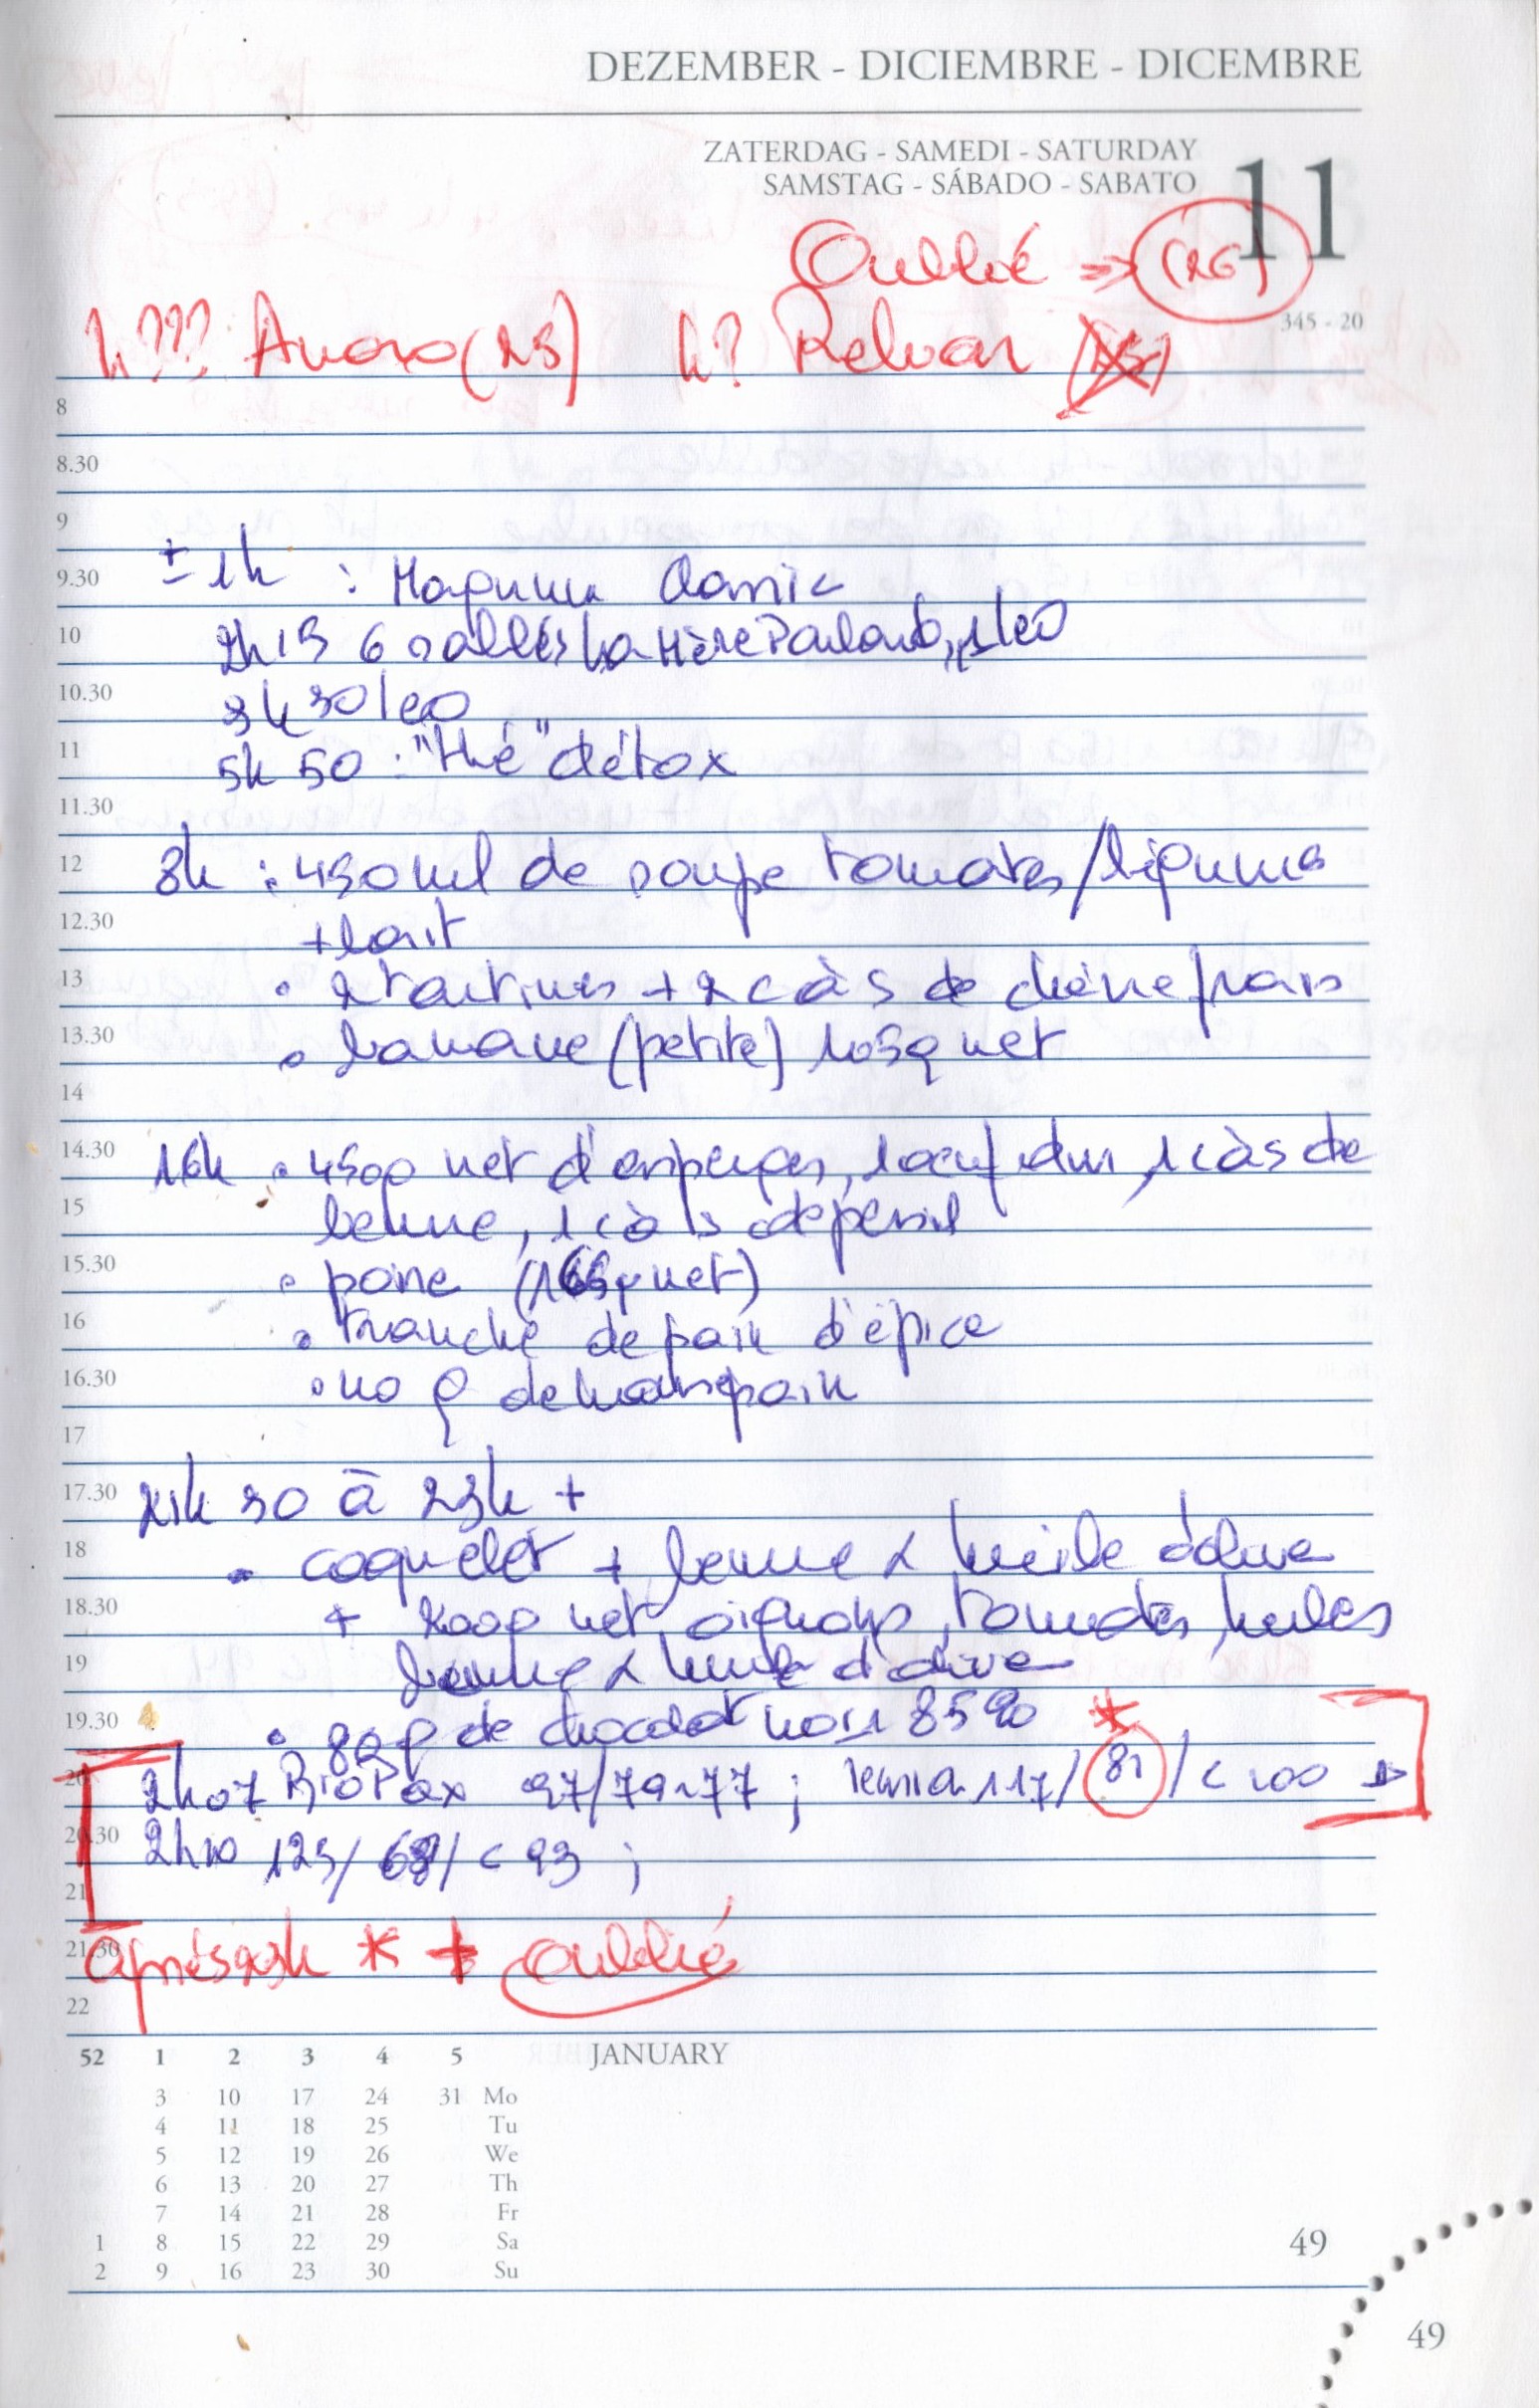 DEZEMBER - DICIEMBRE - DICEMBRE
ZATERDAG - SAMEDI - SATURDAY
SAMSTAG - SÁBADO - SABATO
11
Oublié => (26)
345 - 20
h??? Anoro (25) h? Relvar
8
8.30
9
9.30 ± 1h :
10 2h15 6 sablés La Mère Poulard, 1 leo
10.30 3h30 leo
11 5h50 : "thé" détox
11.30
12 8h : 450 ml de soupe tomates/légumes
12.30 + lait
13 • 2 tartines + 2 càs de chèvre frais
13.30 • banane (petite) 103g net
14
14.30 16h • 450g net d'asperges, 1 oeuf dur, 1 càs de
15 beurre, 1 càs de persil
15.30 • poire (166g net)
16 • tranche de pain d'épice
16.30 • 40 g de massepain
17
17.30 21h30 à 23h +
18 • coquelet + beurre & huile d'olive
18.30 + 200g net oignons, tomates, herbes
19 beurre & huile d'olive
19.30 • 80g de chocolat noir 85% *
20 2h07 BioPax 97/79-77 ; 117/81/c 100
20.30 2h10 123/68/c 93 ;
21
21.30 Après 23h * + oublié
22
52 1 2 3 4 5 JANUARY
3 10 17 24 31 Mo
4 11 18 25 Tu
5 12 19 26 We
6 13 20 27 Th
7 14 21 28 Fr
1 8 15 22 29 Sa
2 9 16 23 30 Su
49
49